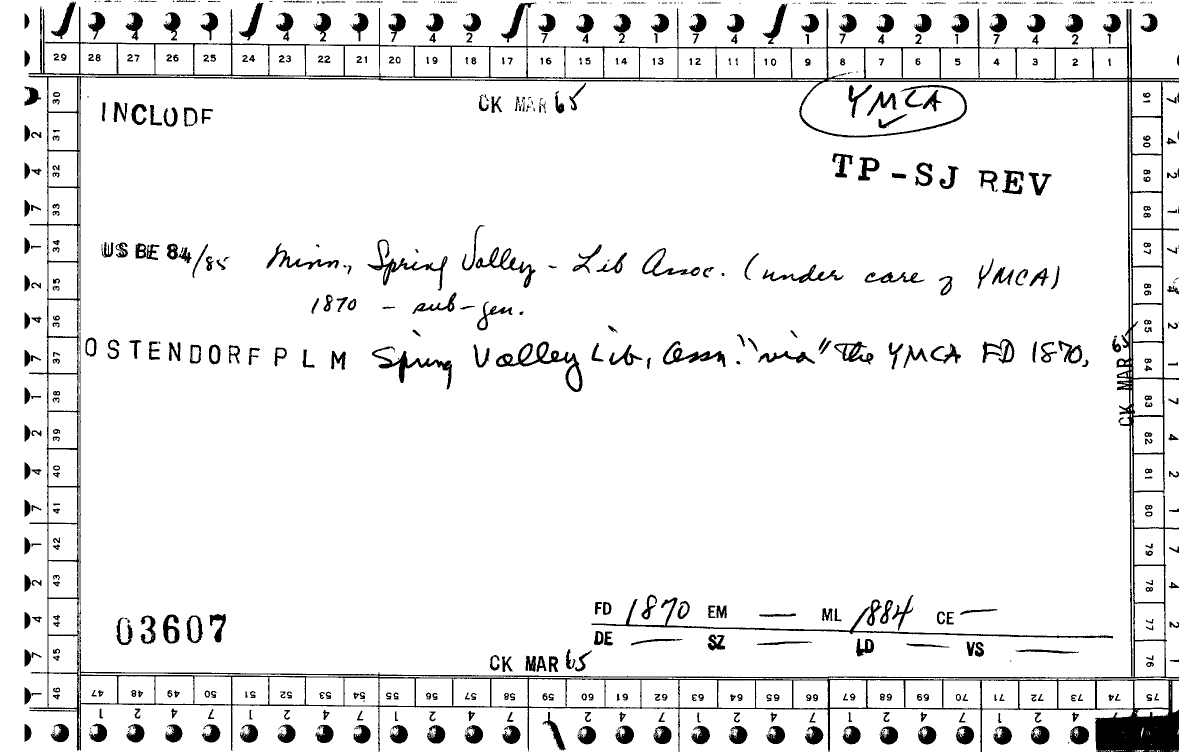 7 4 2 1 7 4 2 1 7 4 2 1 7 4 2 1 7 4 2 1 7 4 2 1
29 28 27 26 25 24 23 22 21 20 19 18 17 16 15 14 13 12 11 10 9 8 7 6 5 4 3 2 1
INCLUDE
CK MAR 65
YMCA
TP-SJ REV
US BE 84/85 Minn., Spring Valley - Lib Assoc. (under care of YMCA)
1870 - sub-gen.
OSTENDORF P L M Spring Valley Lib, Assn. "via" the YMCA FD 1870,
CK MAR 65
03607
FD 1870 EM — ML 1884 CE —
DE — SZ — LD — VS —
CK MAR 65
30 31 32 33 34 35 36 37 38 39 40 41 42 43 44 45 46
91 90 89 88 87 86 85 84 83 82 81 80 79 78 77 76
47 48 49 50 51 52 53 54 55 56 57 58 59 60 61 62 63 64 65 66 67 68 69 70 71 72 73 74 75